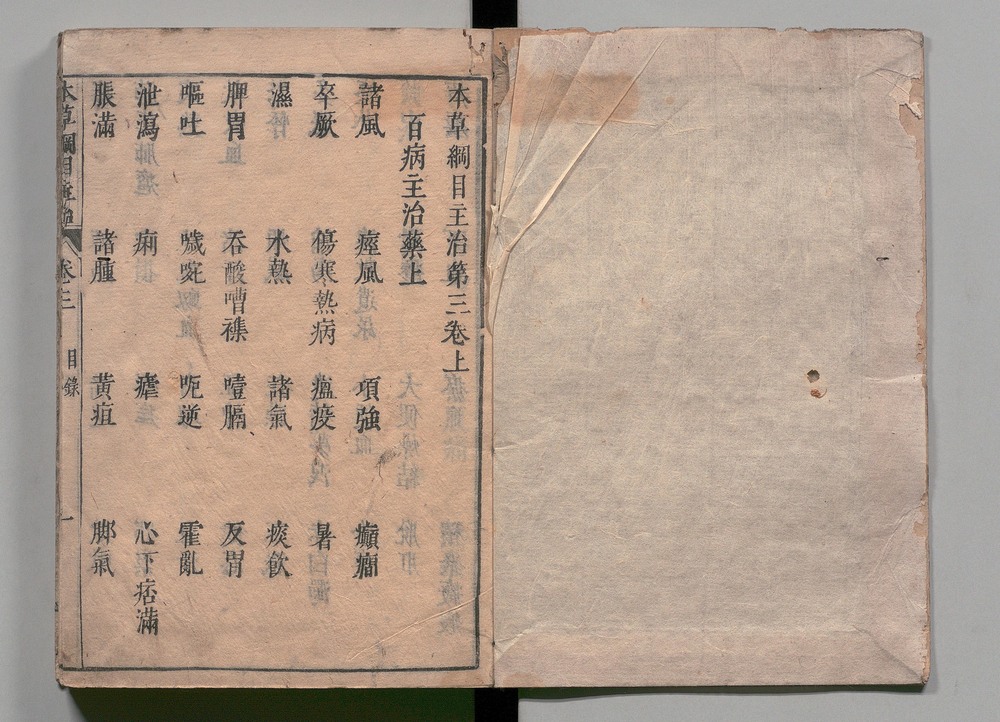 本草綱目主治第三卷上
百病主治藥上
諸風 痙風 項強 癲癎
卒厥 傷寒熱病 瘟疫 暑
濕 火熱 諸氣 痰飲
脾胃 吞酸嘈襍 噎膈 反胃
嘔吐 噦啘 呃逆 霍亂
泄瀉 痢 瘧 心下痞滿
脹滿 諸腫 黃疸 脚氣
本草綱目主治 卷三 目錄 一